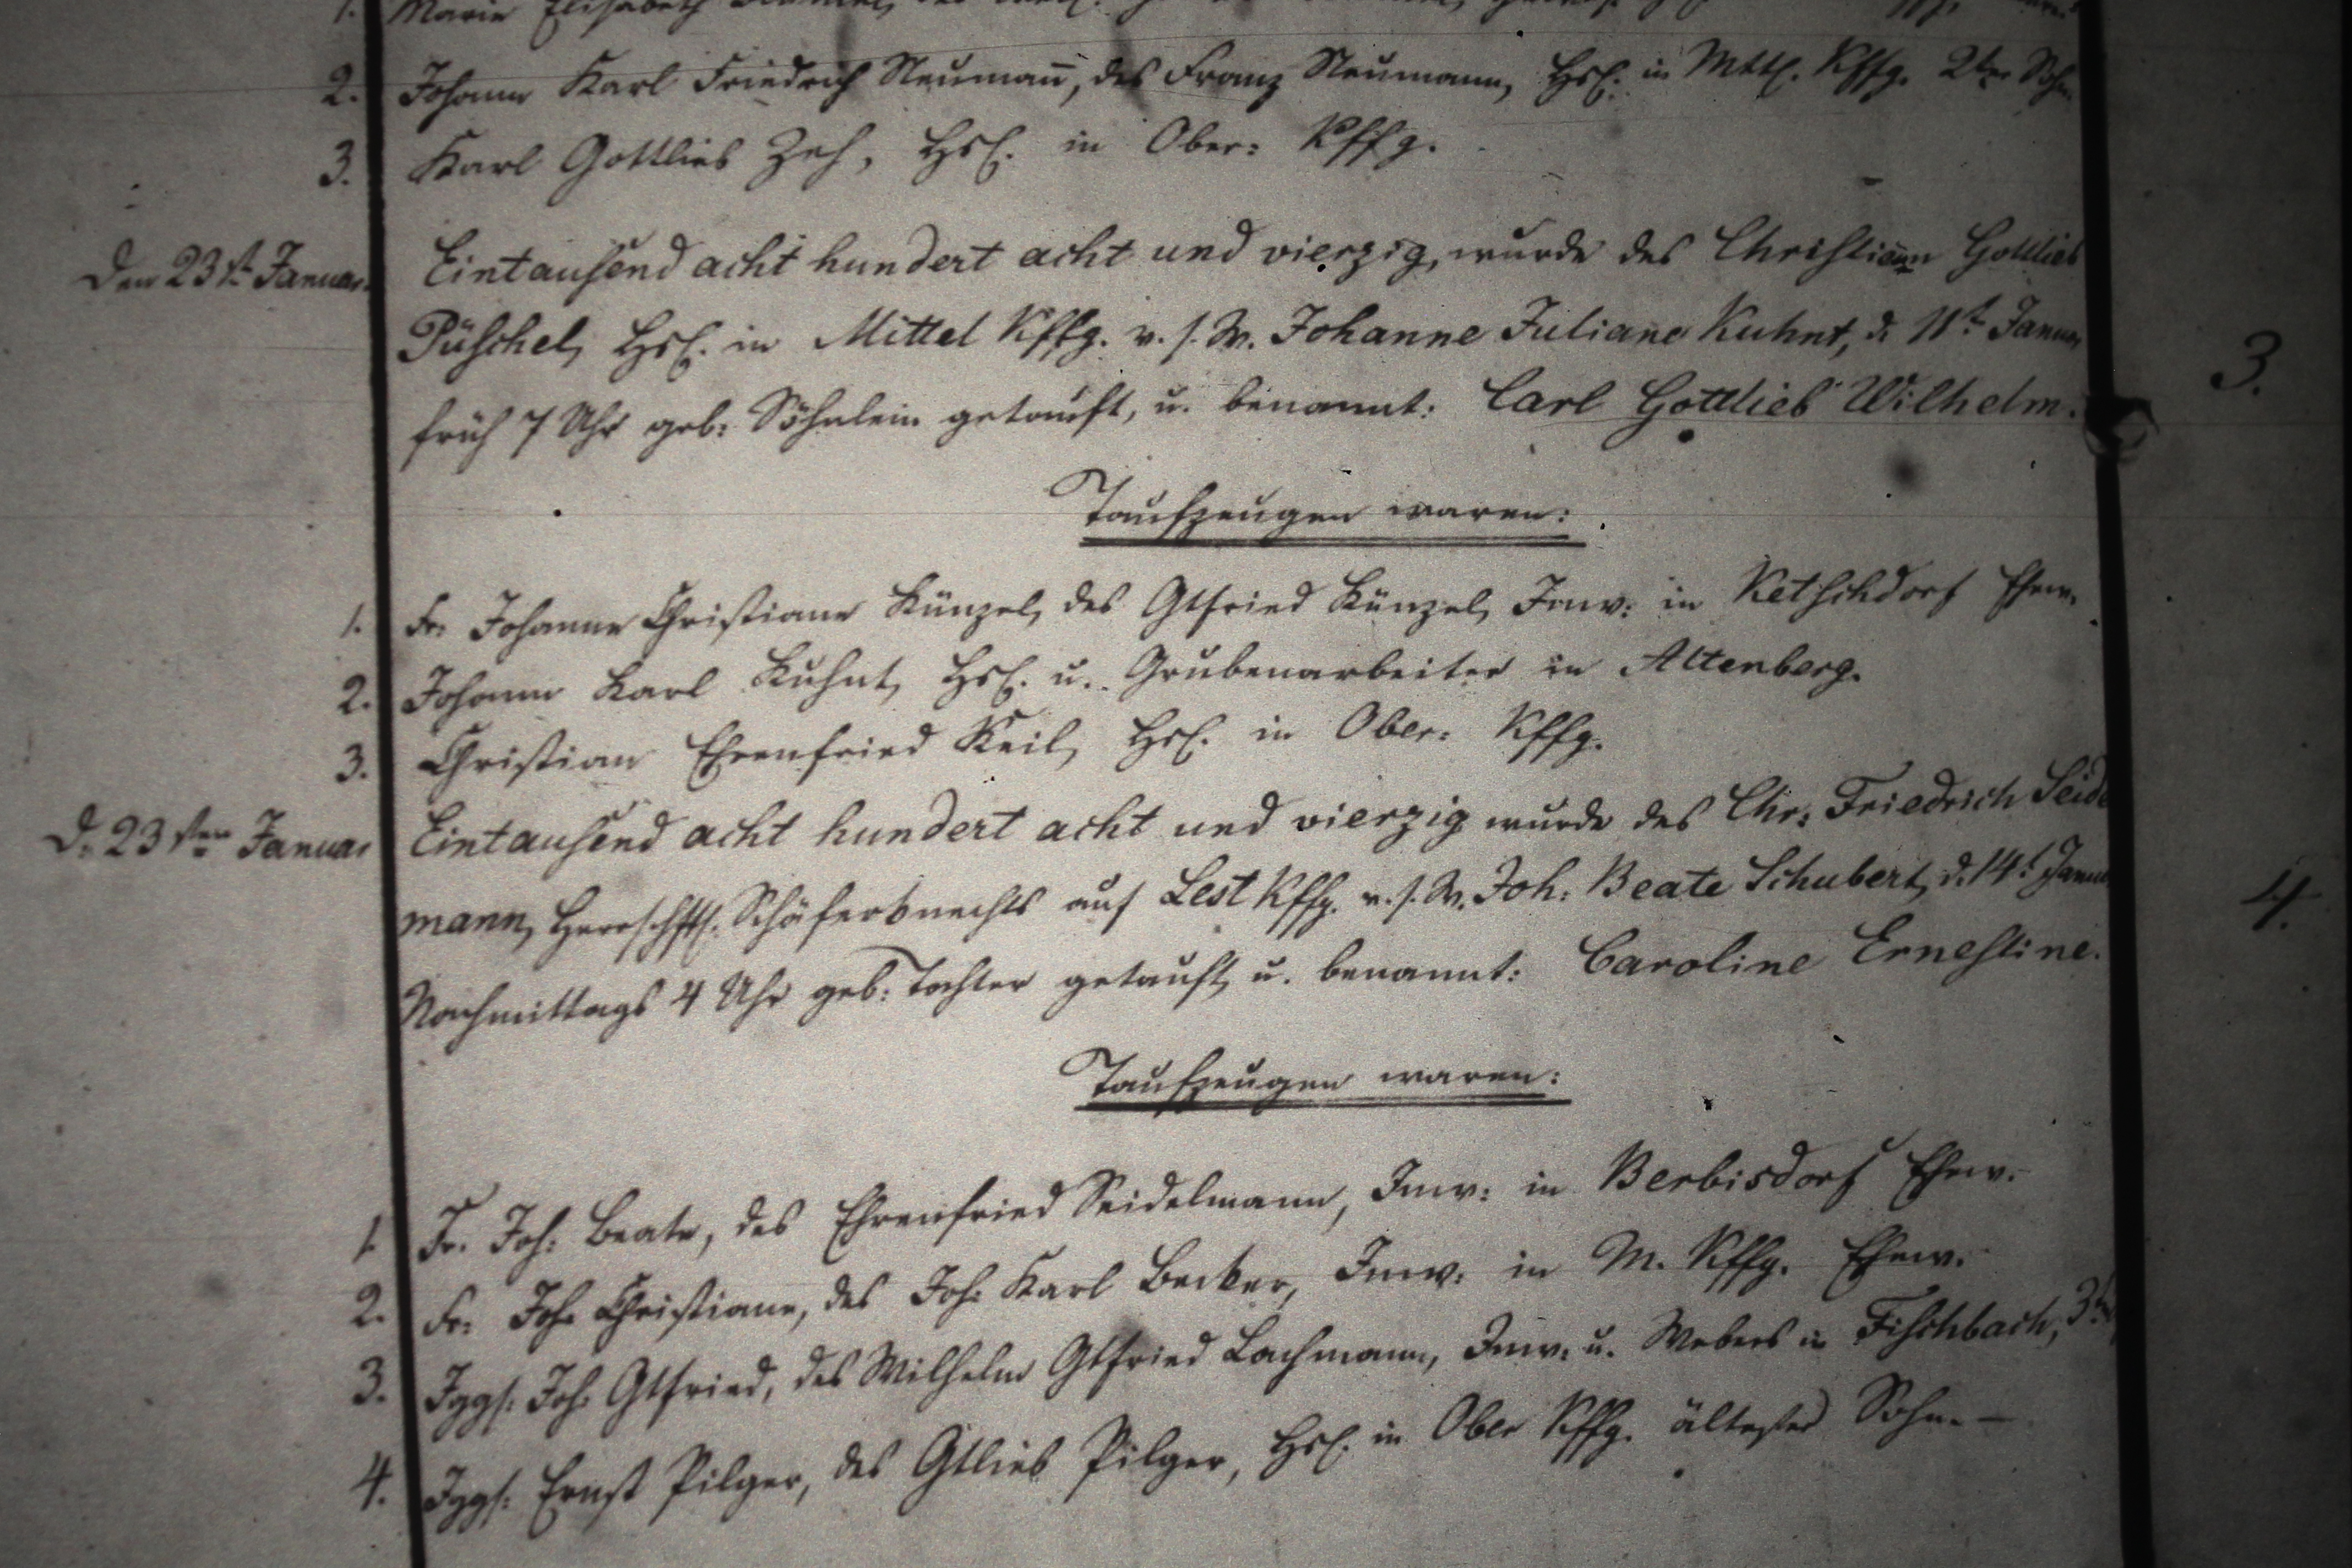 1. Marie Elisabeth
2. Johann Karl Friedrich Neumañ, des Franz Neumann, Hsl. in Mttl. Kffg. 2ter Sohn
3. Karl Gottlieb Zeh, Hsl. in Ober: Kffg.
Den 23t. Januar. Eintausend acht hundert acht und vierzig, wurde des Christian Gottlieb 3.
Püschel, Hsl. in Mittel Kffg. v. s. W. Johanne Juliane Kuhnt, d. 11t. Januar
früh 7 Uhr geb: Söhnlein getauft, u. benannt: Carl Gottlieb Wilhelm.
Taufzeugen waren:
1. Fr: Johanne Christiane Künzel, des Gtfried Künzel, Inw: in Ketschdorf Ehew.
2. Johann Karl Kuhnt, Hsl. u. Grubenarbeiter in Altenberg.
3. Christian Ehrenfried Keil, Hsl. in Ober: Kffg.
D. 23sten Januar Eintausend acht hundert acht und vierzig wurde des Chr: Friedrich Seidel 4.
mann, Herrschftl. Schäferknechts auf Lest Kffg. v. s. W. Joh: Beate Schubert, d. 14t Januar
Nachmittags 4 Uhr geb: Tochter getauft, u. benannt: Caroline Ernestine.
Taufzeugen waren:
1. Fr. Joh: Beate, des Ehrenfried Seidelmann, Inw: in Berbisdorf Ehew.
2. Fr: Joh: Christiane, des Joh: Karl Becker, Inw: in M. Kffg. Ehew.
3. Iggs. Joh: Gtfried, des Wilhelm Gtfried Lachmann, Inw. u. Webers in Fischbach,
4. Iggs: Ernst Pilger, des Gtlieb Pilger, Hsl. in Ober Kffg. ältester Sohn. —